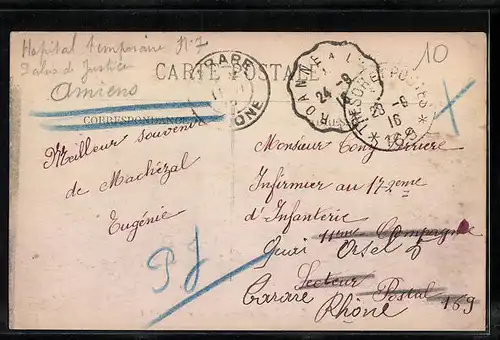 Hopital temporaire N. 7
Palais de Justice
Amiens
10
CARTE POSTALE
CORRESPONDANCE
TARARE
RHONE
ROANNE A L
24-9
16
TRESOR ET POSTES
28-9
16
* 168 *
Meilleur souvenir
de Machézal
Eugénie
PJ
Monsieur Tony
Infirmier au 172eme
d'Infanterie
11eme Compagnie
Quai Orsel 8
Secteur Postal 169
Tarare
Rhône